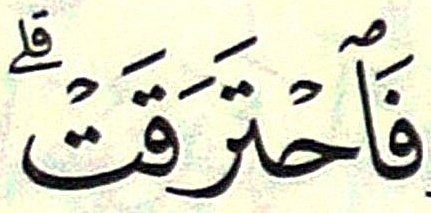 فَٱحْتَرَقَتْۗ